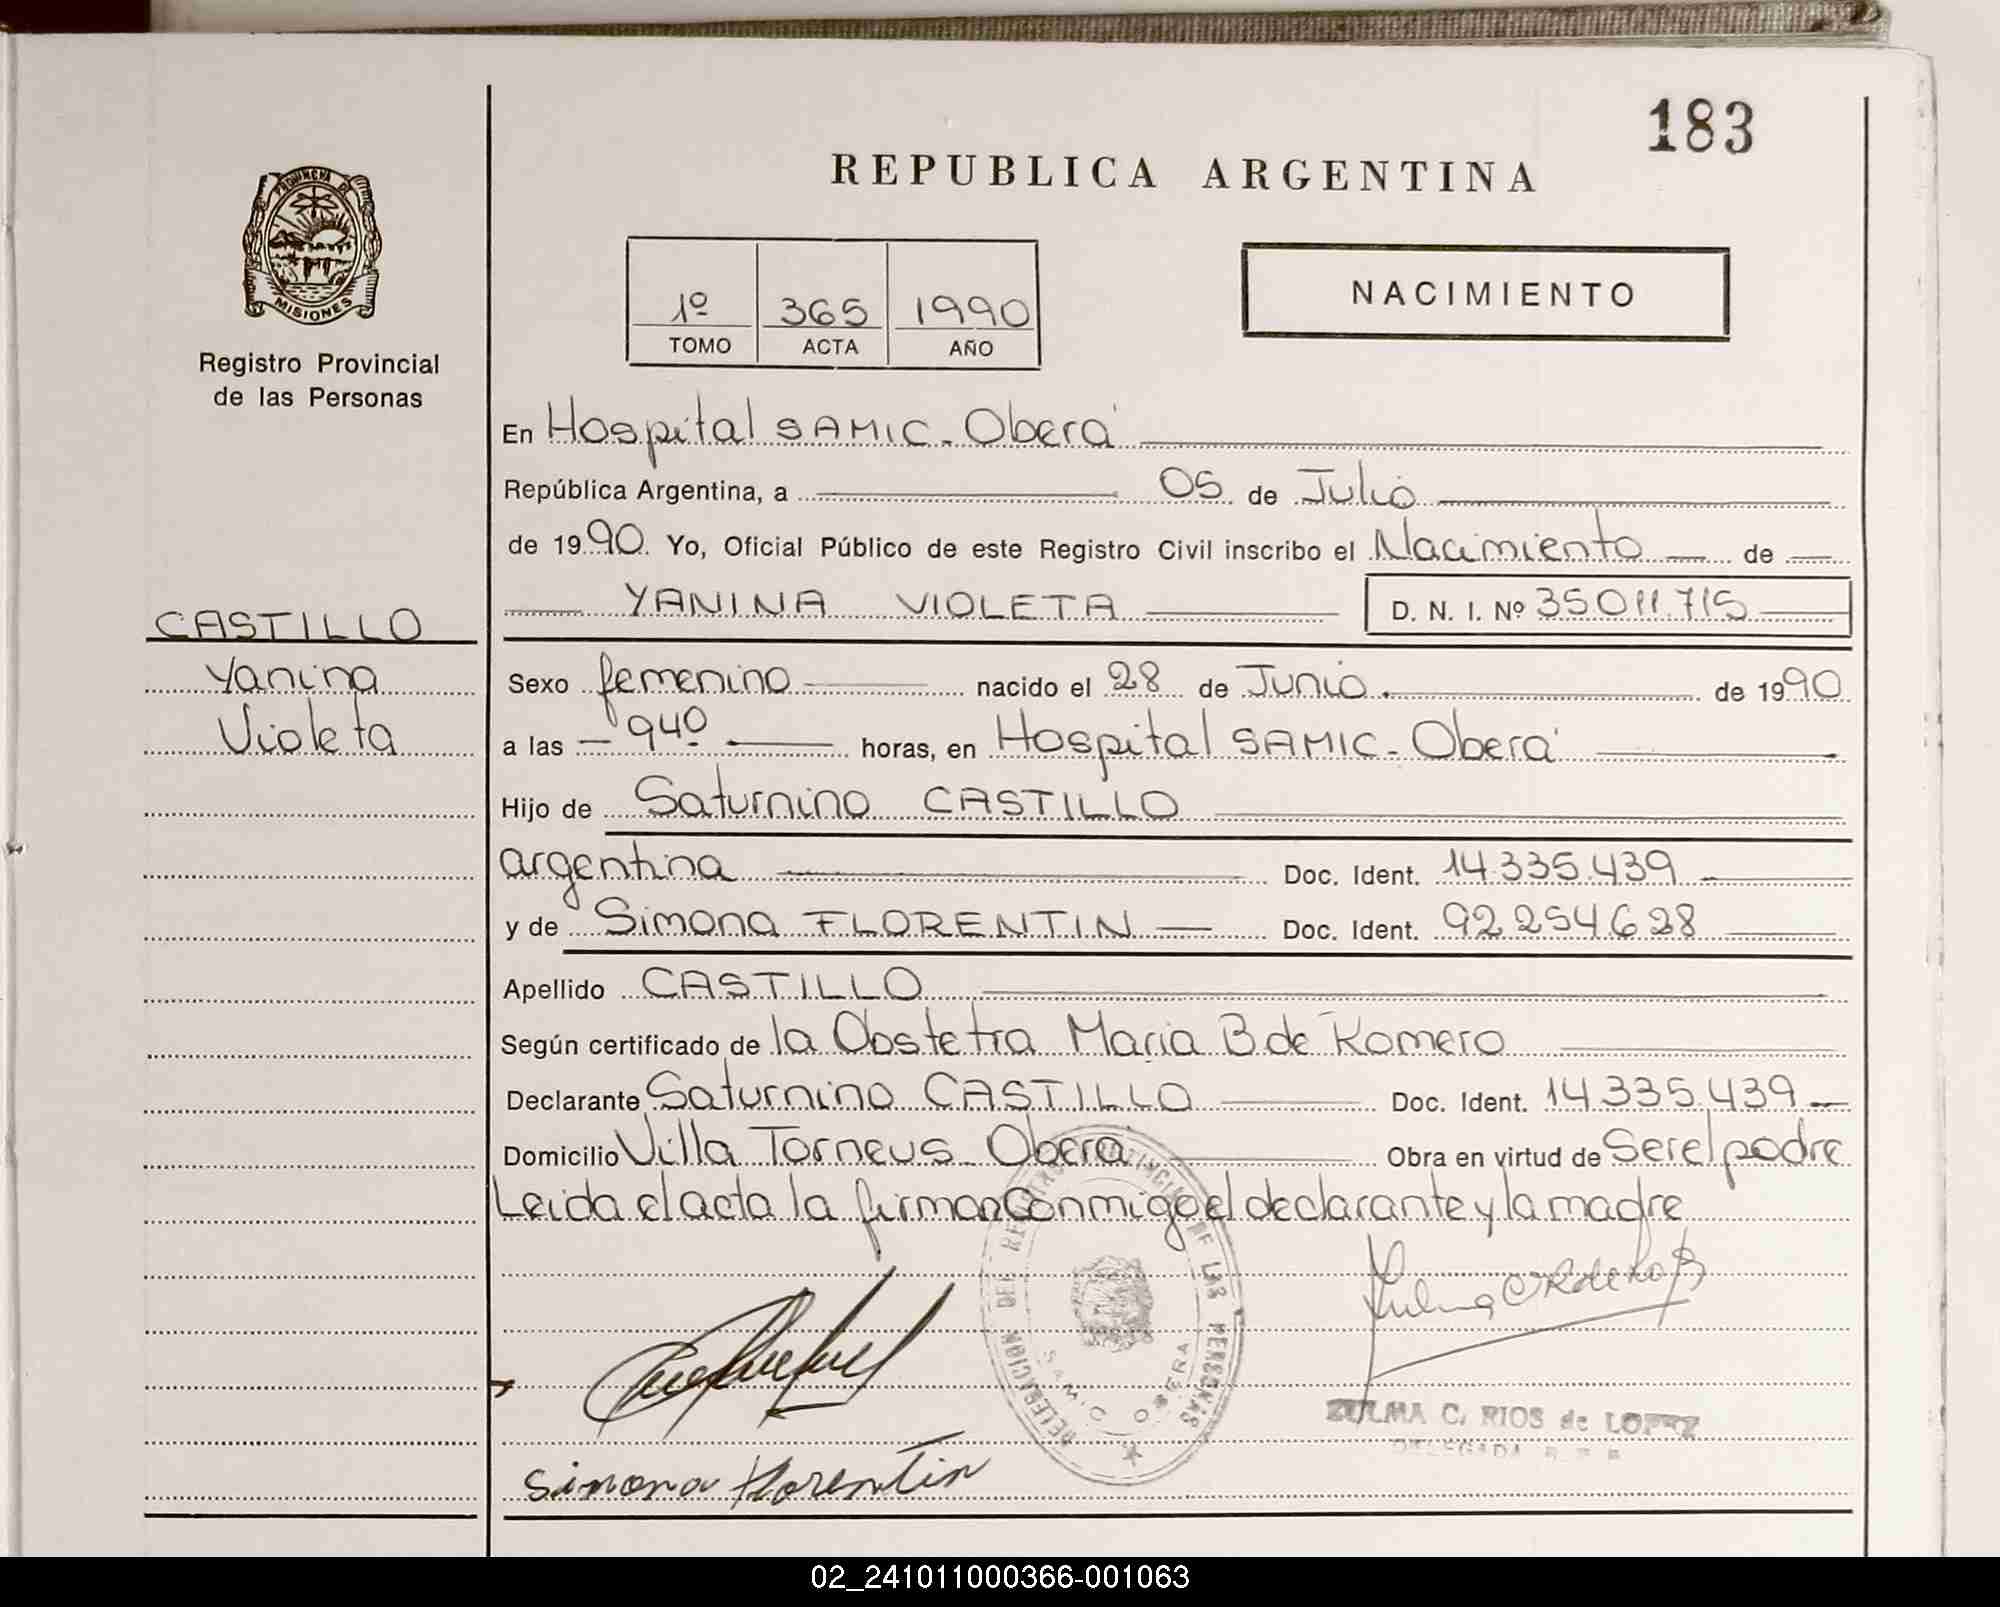 183
REPUBLICA ARGENTINA
PROVINCIA DE
MISIONES
Registro Provincial
de las Personas
1º 365 1990
TOMO ACTA AÑO
NACIMIENTO
En Hospital SAMIC - Oberá
República Argentina, a 05 de Julio
de 1990 Yo, Oficial Público de este Registro Civil inscribo el Nacimiento de
YANINA VIOLETA D. N. I. Nº 35011.715
CASTILLO
Yanina
Violeta
Sexo femenino nacido el 28 de Junio de 1990
a las 940 horas, en Hospital SAMIC - Oberá
Hijo de Saturnino CASTILLO
argentina Doc. Ident. 14.335.439
y de Simona FLORENTIN Doc. Ident. 92.254.628
Apellido CASTILLO
Según certificado de la Obstetra Maria B de Romero
Declarante Saturnino CASTILLO Doc. Ident. 14.335.439
Domicilio Villa Torneus Oberá Obra en virtud de Ser el padre
Leida el acta la firman conmigo el declarante y la madre
DELEGACION DEL REGISTRO PROVINCIAL DE LAS PERSONAS
SAMIC OBERA
ZULMA C. RIOS de LOPEZ
DELEGADA R. P. P.
Simona Florentin
02_241011000366-001063